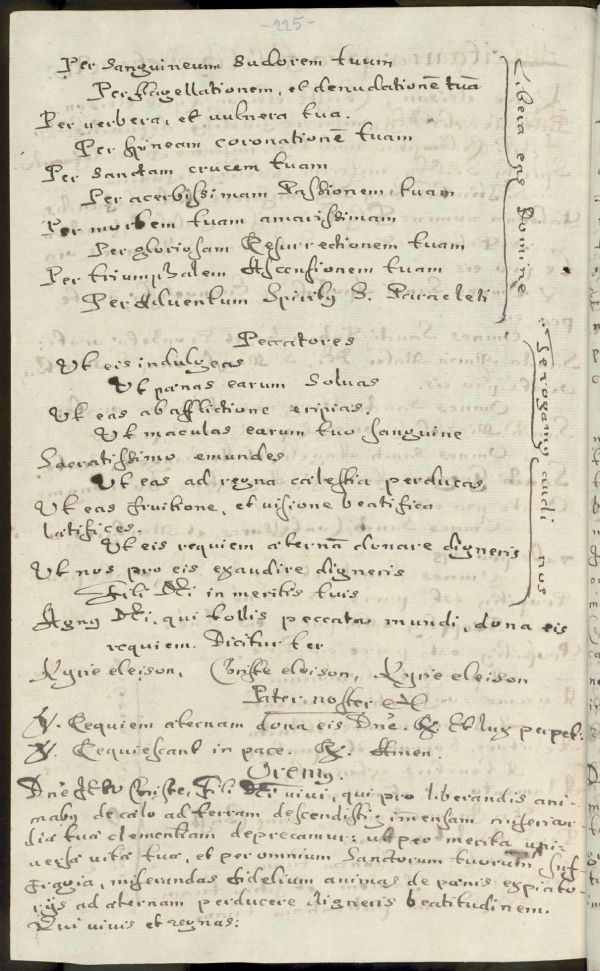 -225-
Per sanguineum sudorem tuum
Per flagellationem, et denudationē tuā
Per verbera, et vulnera tua.
Per spineam coronationē tuam
Per sanctam crucem tuam
Per acerbissimam Passionem tuam
Per mortem tuam amarissimam
Per gloriosam Resurrectionem tuam
Per triumphalem Ascensionem tuam
Per Adventum Spiritus S. Paracleti
Libera eas Domine
Peccatores
Ut eis indulgeas
Ut pænas earum solvas
Ut eas ab afflictione eripias.
Ut maculas earum tuo sanguine
Sacratissimo emundes
Ut eas ad regna cælestia perducas
Ut eas fruitione, et visione beatifica
lætifices.
Ut eis requiem æternā donare digneris
Ut nos pro eis exaudire digneris
Fili Dei in meritis tuis
Te rogamus audi nos
Agnus Dei, qui tollis peccata mundi, dona eis
requiem. Dicitur ter
Kyrie eleison, Christe eleison, Kyrie eleison
Pater noster etc
℣. Requiem æternam dona eis Dn̄e. ℟. Et lux perpet:
℣. Requiescant in pace. ℟. Amen.
Oremus.
Dn̄e Jesu Christe, Fili Dei vivi, qui pro liberandis ani-
mabus de cælo ad terram descendisti, imensam misericor
diā tuā clementiam deprecamur: ut per merita uni-
versæ vitæ tuæ, et per omnium Sanctorum tuorum suf-
fragia, miserandas fidelium animas de pænis expiato-
rijs ad æternam perducere digneris beatitudinem.
Qui vivis et regnas: